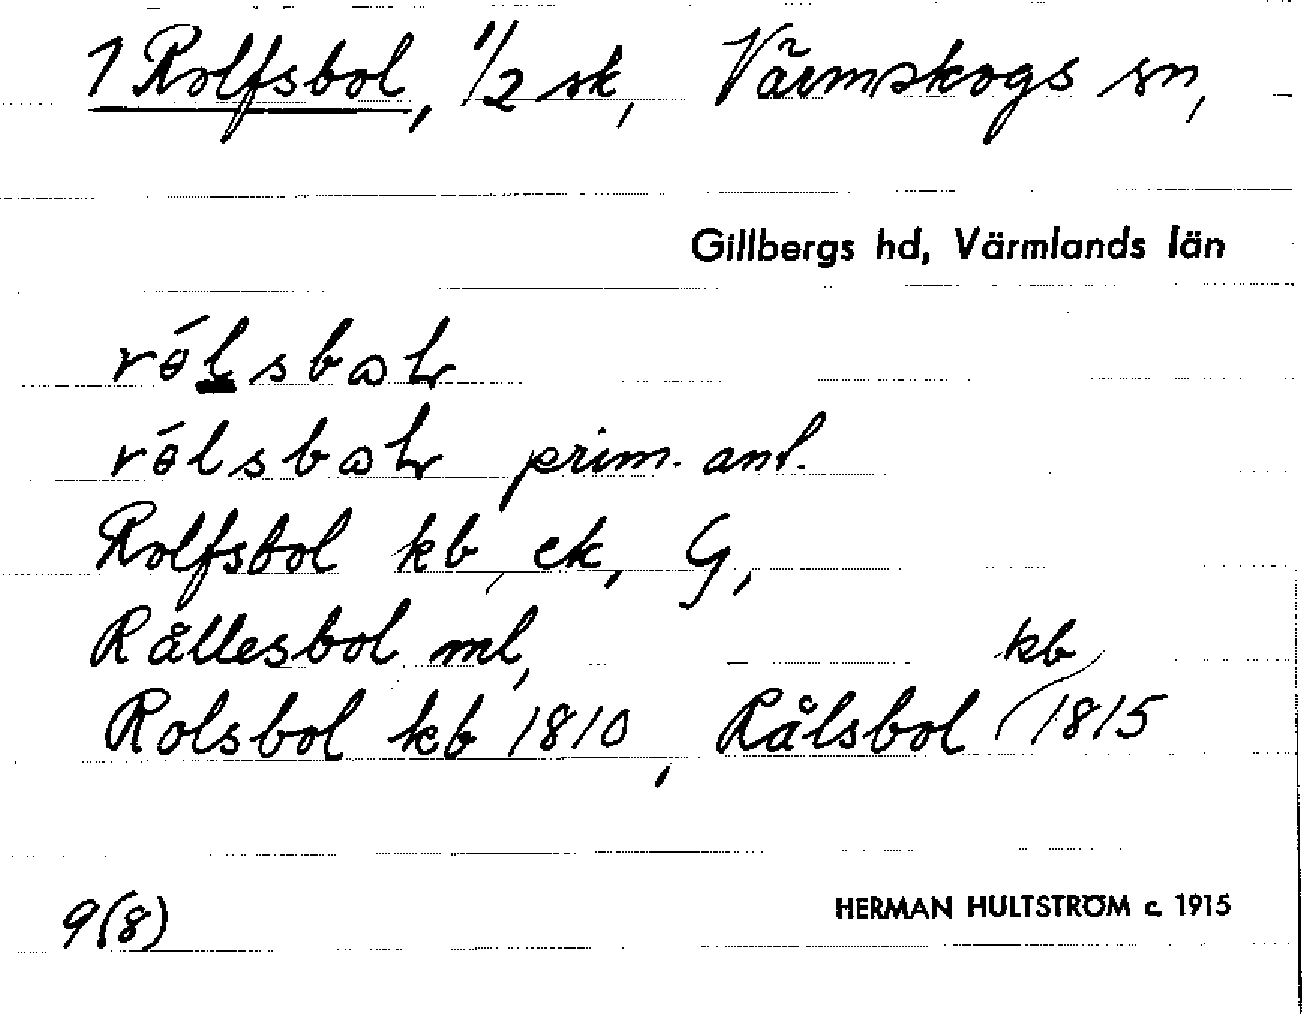 1 Rolfsbol, 1/2 sk, Värmskogs sn,
Gillbergs hd, Värmlands län
prim. ant.
Rolfsbol kb, ek, G,
Rållesbol ml,
Rolsbol kb 1810, Rålsbol kb 1815
9(8)
HERMAN HULTSTRÖM c. 1915